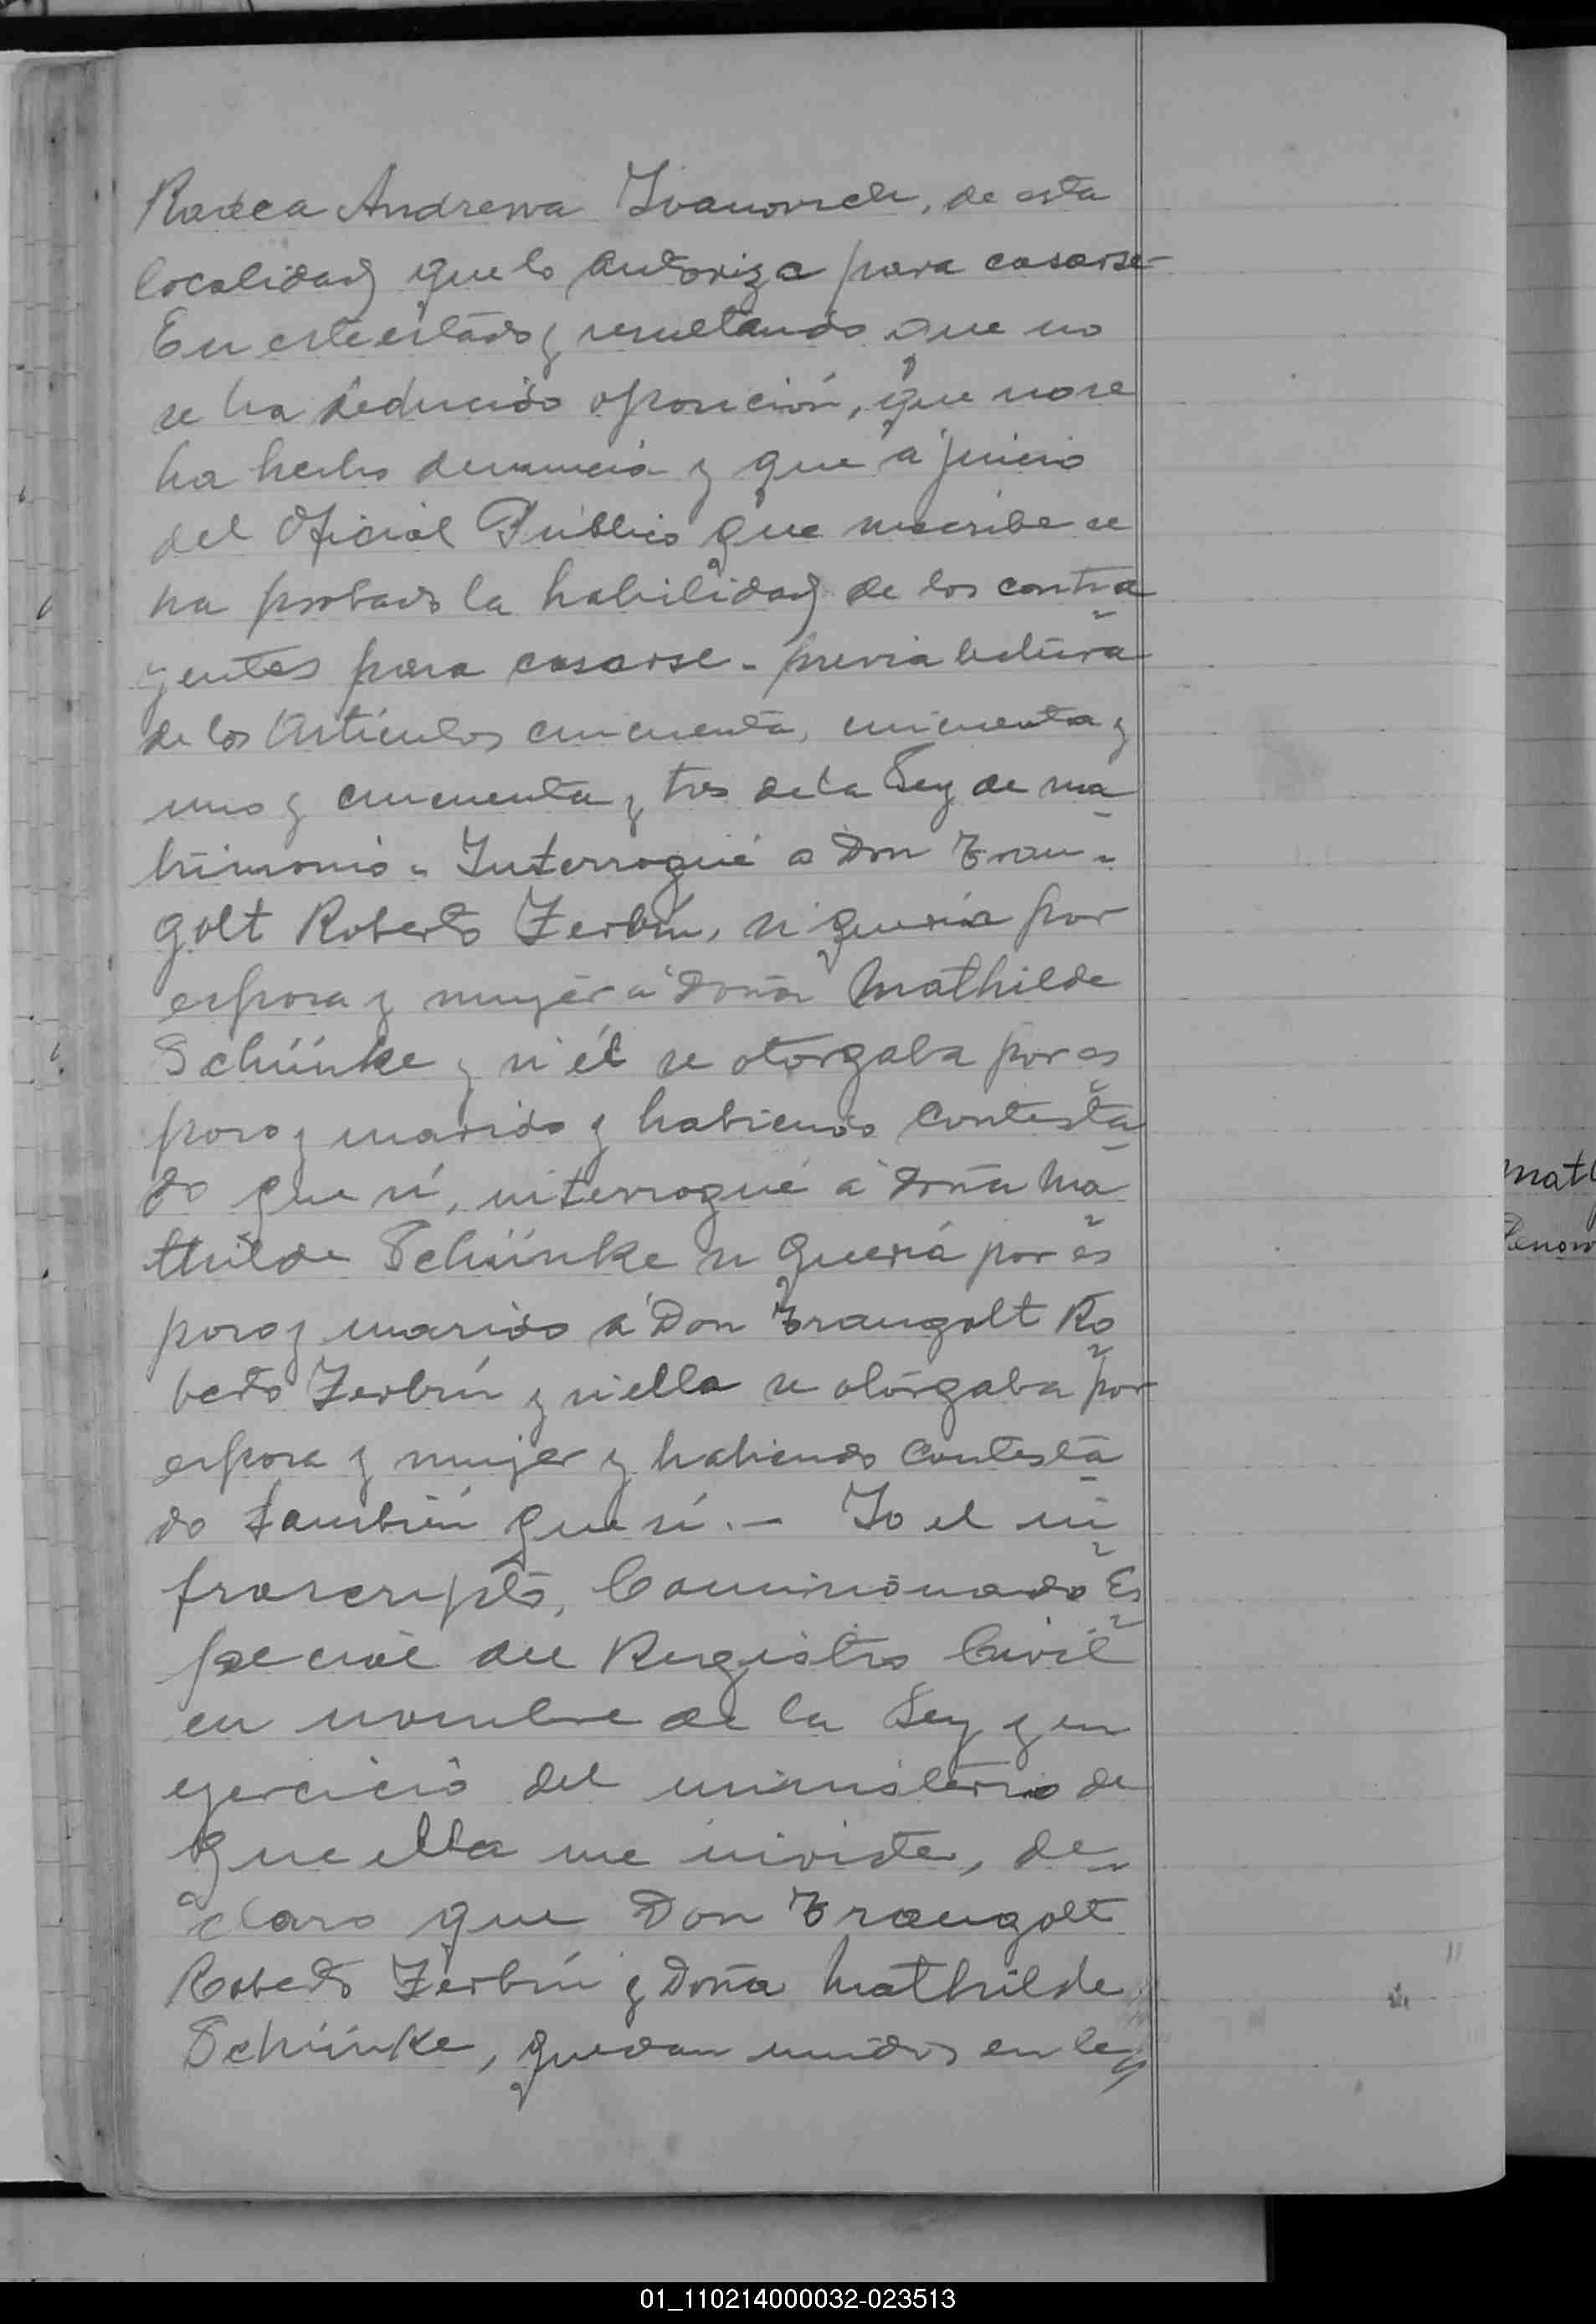 Radca Andrewa Ivanovich, de esta
localidad que lo autoriza para casarse-
En este estado y resultando que no
se ha deducido oposición, que no se
ha hecho denuncia y que á juicio
del Oficial Público que suscribe se
ha probado la habilidad de los contra
yentes para casarse - previa lectura
de los Artículos cincuenta, cincuenta y
uno y cincuenta y tres de la Ley de ma
trimonio - Interrogué a Don Trau-
golt Roberto Zerbin, si quería por
esposa y mujer á Doña Mathilde
Schünke y si él se otorgaba por es
poso y marido y habiendo contesta
do que sí, interrogué á Doña Ma
thilde Schünke si quería por es
poso y marido á Don Traugolt Ro
berto Zerbin y si ella se otorgaba por
esposa y mujer y habiendo contesta
do también que sí. - Yo el in
frascripto, Comisionado Es
pecial del Registro Civil
en nombre de la Ley y en
ejercicio del ministerio de
que ella me inviste, de-
claro que Don Traugolt
Roberto Zerbin y Doña Mathilde
Schünke, quedan unidos en le
Math
01_110214000032-023513